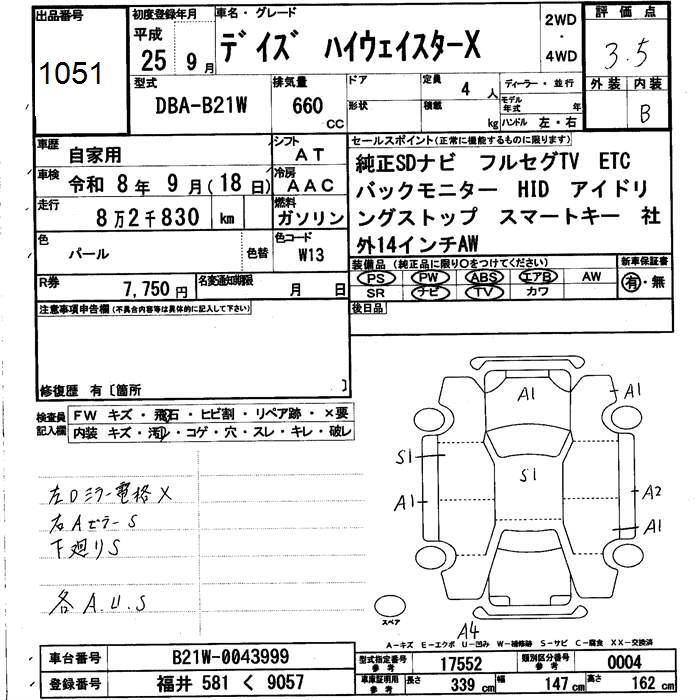 出品番号
1051
初度登録年月
平成
25 9月
車名・グレード
デイズ ハイウェイスターX
2WD
・
4WD
評価点
3.5
外装 内装
B
型式
DBA-B21W
排気量
660
CC
ドア
形状
定員
4 人
積載
kg
ディーラー・並行
モデル年式 年
ハンドル 左・右
車歴
自家用
シフト
AT
車検
令和 8年 9月(18日)
冷房
AAC
走行
8万2千830 km
燃料
ガソリン
色
パール
色替
色コード
W13
R券
7,750円
名変通知期限
月 日
セールスポイント(正常に機能するものに限ります)
純正SDナビ フルセグTV ETC
バックモニター HID アイドリ
ングストップ スマートキー 社
外14インチAW
装備品 (純正品に限り○をつけてください)
PS PW ABS エアB AW
SR ナビ TV カワ
新車保証書
有・無
後日品
注意事項申告欄(不具合内容等は具体的に記入して下さい)
修復歴 有〔箇所 〕
検査員
記入欄
FW キズ・飛石・ヒビ割・リペア跡・×要
内装 キズ・汚れ・コゲ・穴・スレ・キレ・破レ
左Dミラー電格X
右AピラーS
下廻りS
各A.U.S
A1
A1
S1
S1
A1
A2
A1
A4
スペア
A-キズ E-エクボ U-凹み W-補修跡 S-サビ C-腐食 XX-交換済
車台番号
B21W-0043999
登録番号
福井 581 く 9057
型式指定番号
参考
17552
類別区分番号
参考
0004
車庫証明用
参考
長さ 339 cm
幅 147 cm
高さ 162 cm